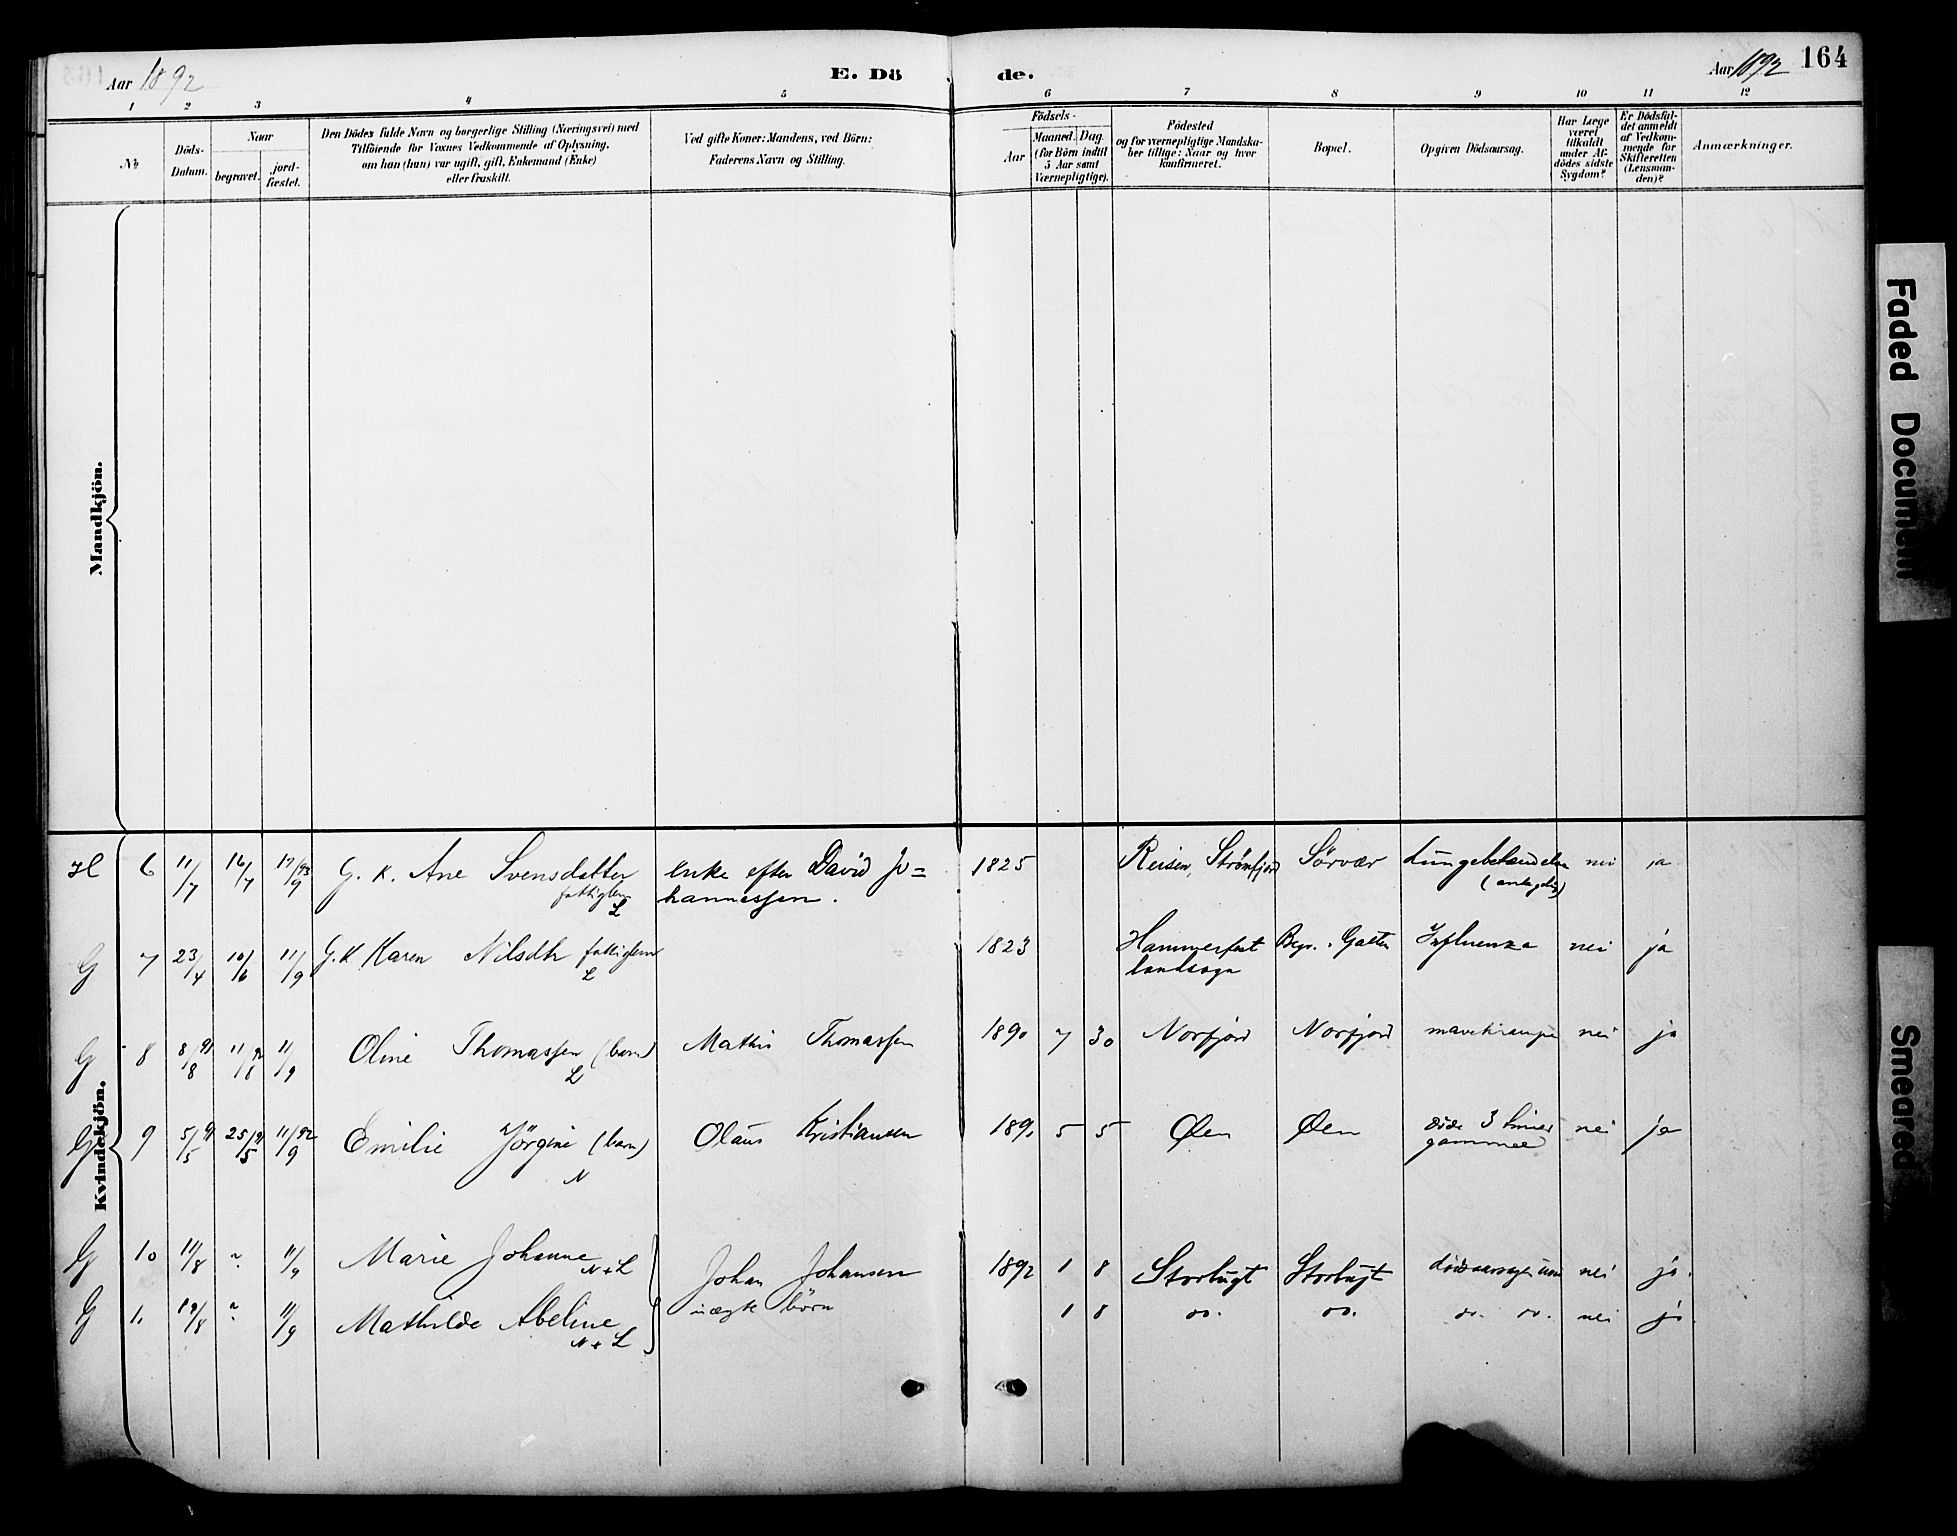 Aar 1892
E. Dö
de.
Aar 1892
164
1 2 3 4 5 6 7 8 9 10 11 12
№
Döds-
Datum.
Naar
begravet.
jord-
fæstet.
Den Dödes fulde Navn og borgerlige Stilling (Næringsvei) med
Tilföiende for Voxnes Vedkommende af Oplysning,
om han (hun) var ugift, gift, Enkemand (Enke)
eller fraskilt.
Ved gifte Koner: Mandens, ved Börn:
Faderens Navn og Stilling.
Födsels-
Aar
Maaned. Dag.
(for Börn indtil
5 Aar samt
Værnepligtige).
Födested
og for værnepligtige Mandska-
ber tillige: Naar og hvor
konfirmeret.
Bopæl.
Opgiven Dödsaarsag.
Har Læge
været
tilkaldt
under Af-
dödes sidste
Sygdom?
Er Dödsfal-
det anmeldt
af Vedkom-
mende for
Skifteretten
(Lensman-
den)?
Anmærkninger.
Mandkjön.
Kvindekjön.
H 6 11/7 16/7 17/9 93 G. K. Ane Svensdatter enke efter David Jo= 1825 Reisen, Strömfjord Sörvær nei ja
fattiglem hannessen.
L
G 7 23/4 10/6 11/9 G. K Karen Nilsdtr fattiglem 1823 Hammerfest Influenza nei ja
L landsogn
G 8 8/8 91 11/9 Oline Thomassen (barn) Mathis Thomassen 1890 7 30 Norfjord Norfjord mavekrampe nei ja
L
G 9 5/5 91 25/5 91 11/9 92 Emilie Jörgine (barn) Olaus Kristiansen 1891 5 5 Øen Øen döde 3 timer nei ja
N gammel
G 10 11/8 11/9 Marie Johanne Johan Johansen 1892 1 8 Storbugt Storbugt nei ja.
N+L
G 11 19/8 11/9 Mathilde Abeline uægte börn 1 8 do. do. do. do. nei ja.
N+L
Faded Document
Smeared